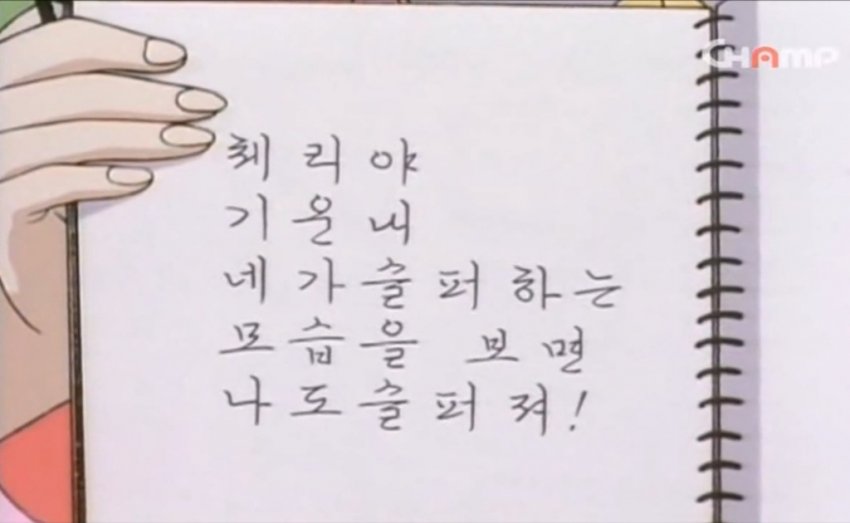 CHAMP
체리야
기운내
네가슬퍼하는
모습을 보면
나도슬퍼져!